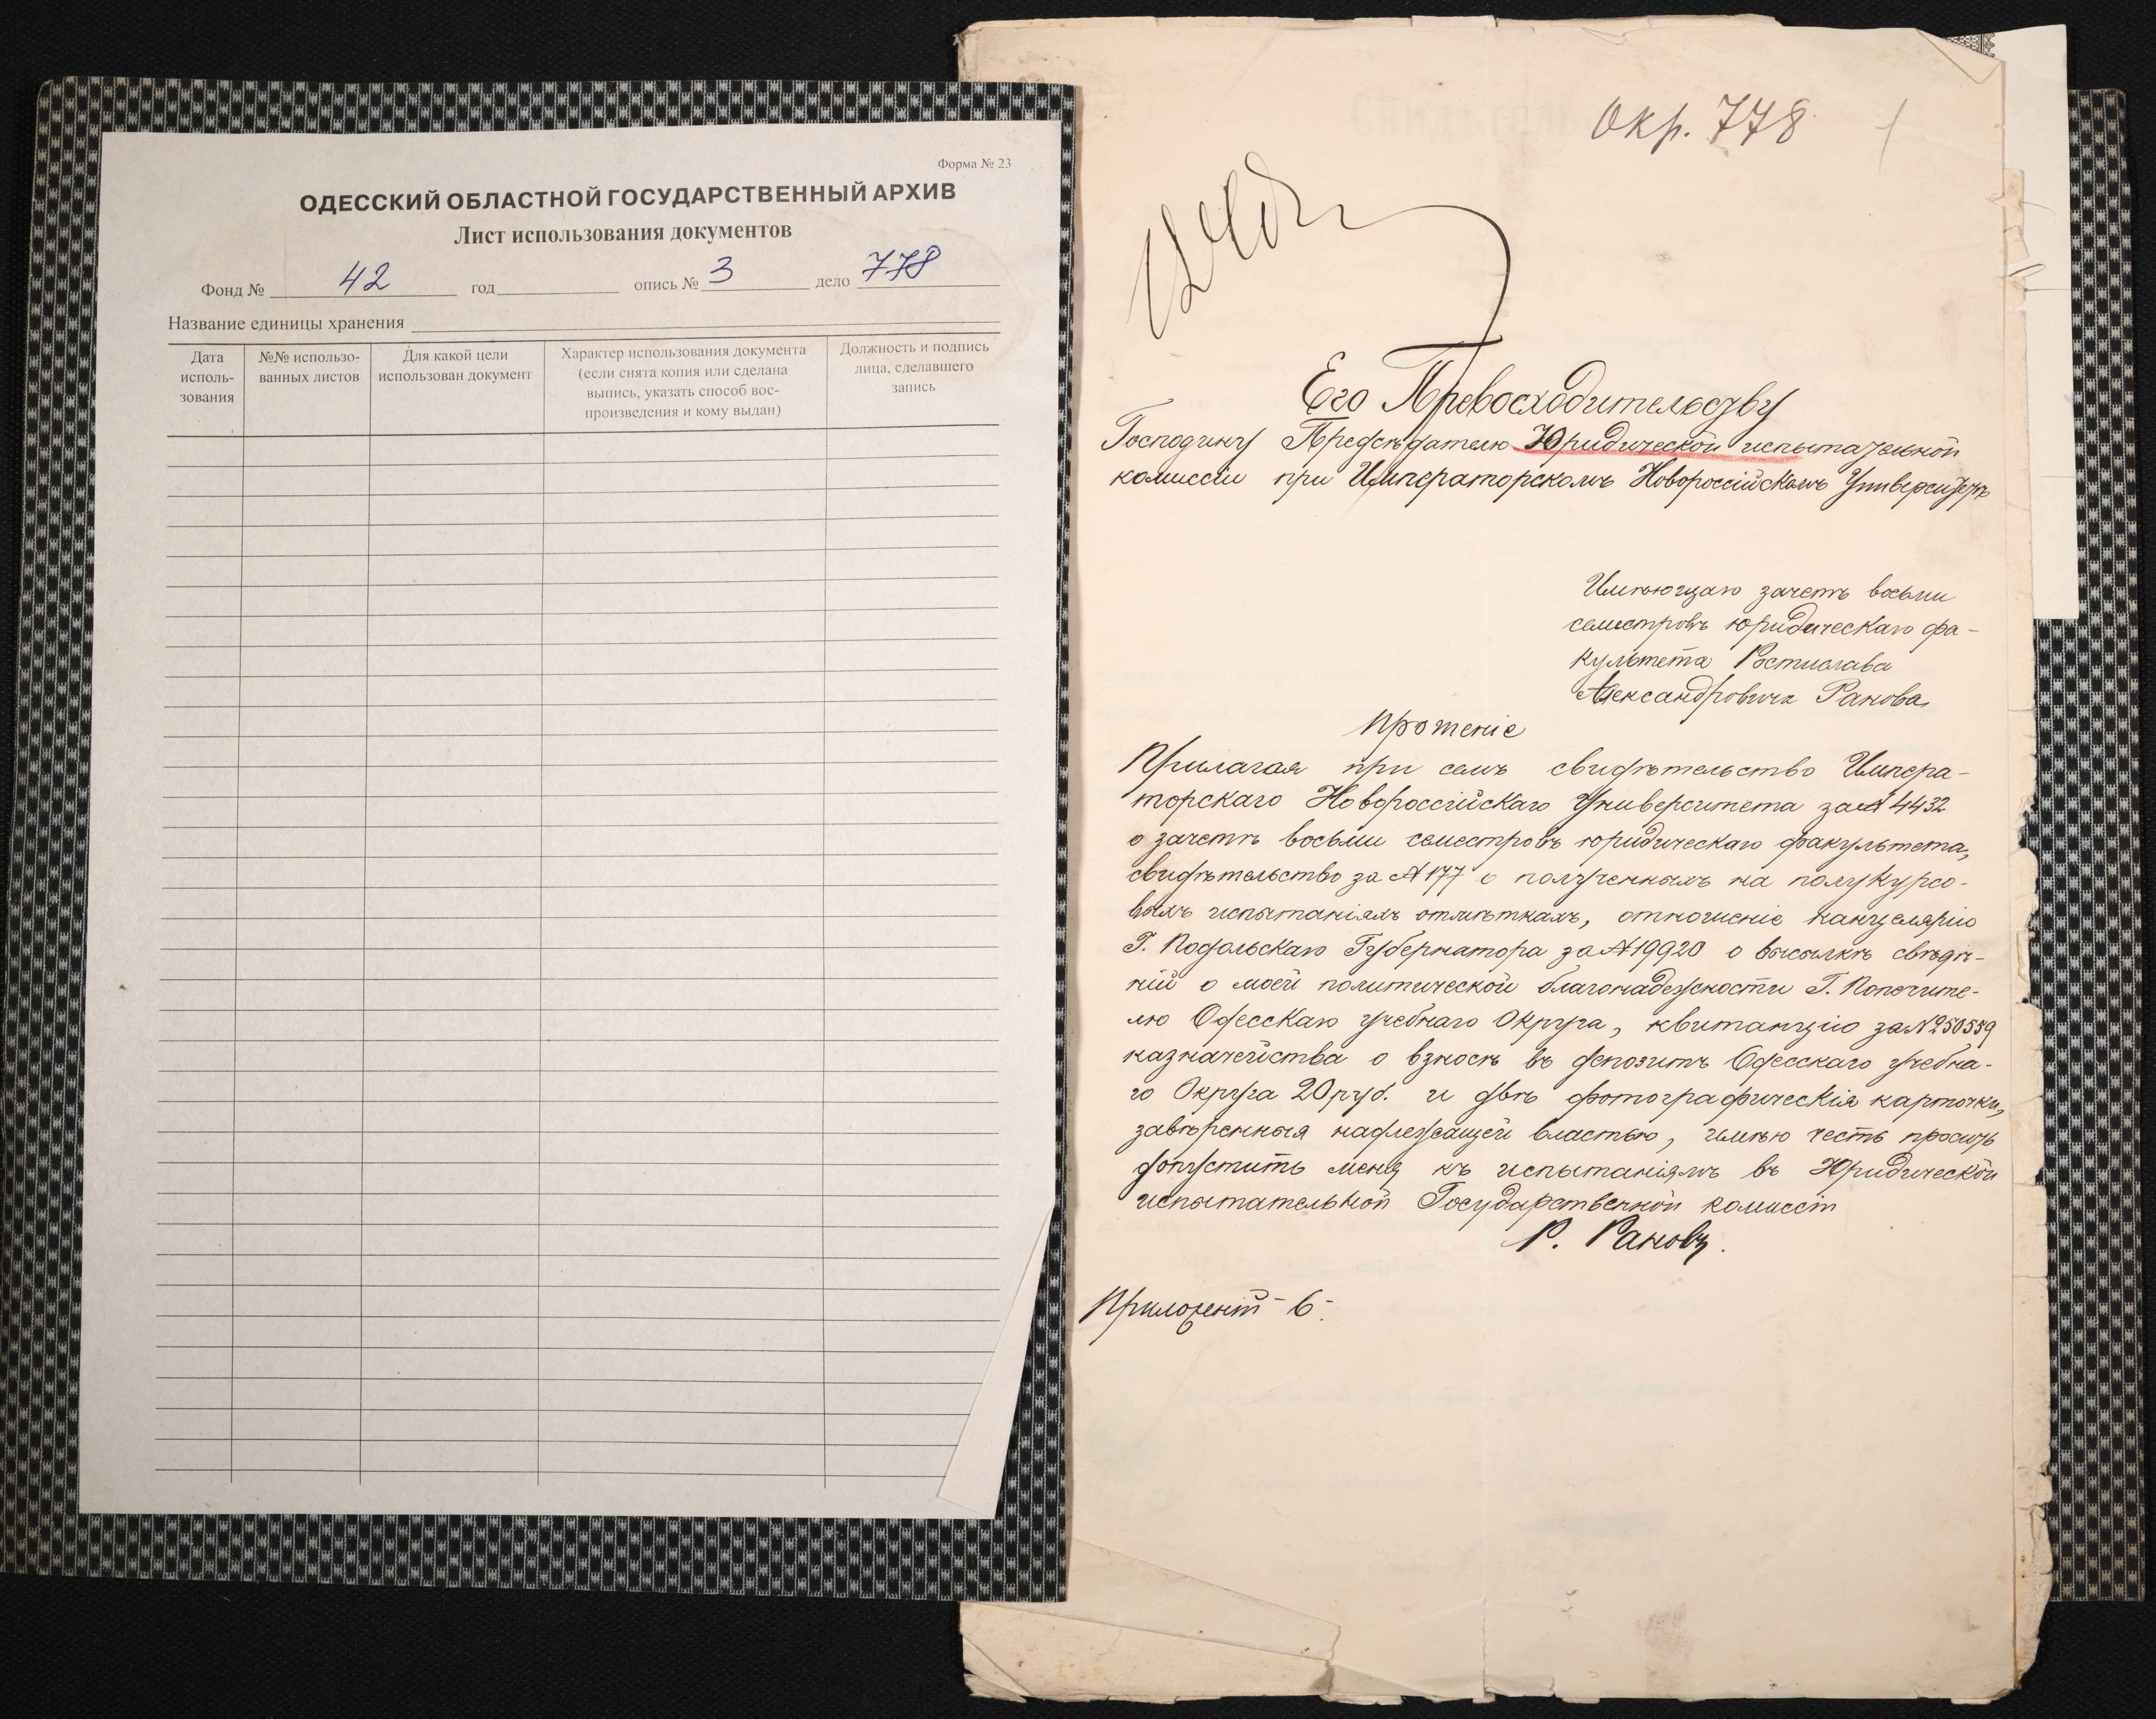 Форма № 23
ОДЕССКИЙ ОБЛАСТНОЙ ГОСУДАРСТВЕННЫЙ АРХИВ
Лист использования документов
Фонд № 42 год опись № 3 дело 778
Название единицы хранения
Дата исполь-зования
№№ использо-ванных листов
Для какой цели использован документ
Характер использования документа (если снята копия или сделана выпись, указать способ вос-произведения и кому выдан)
Должность и подпись лица, сделавшего запись
Окр. 778 1
Его Превосходительству
Господину Предсѣдателю Юридической испытательной
комиссіи при Императорскомъ Новороссійскомъ Университетѣ
Имѣющаго зачетъ восьми
семестровъ юридическаго фа-
культета Ростислава
Александровича Ранова
Прошеніе
Прилагая при семъ свидѣтельство Импера-
торскаго Новороссійскаго Университета за № 4432
о зачетѣ восьми семестровъ юридическаго факультета,
свидѣтельство за № 177 о полученныхъ на полукурсо-
выхъ испытаніяхъ отмѣткахъ, отношеніе канцеляріи
Г. Подольскаго Губернатора за № 19920 о высылкѣ свѣдѣ-
ній о моей политической благонадежности Г. Попечите-
лю Одесскаго учебнаго Округа, квитанцію за № 250559
казначейства о взносѣ въ депозитъ Одесскаго учебна-
го Округа 20 руб. и двѣ фотографическія карточки,
завѣренныя надлежащей властью, имѣю честь просить
допустить меня къ испытаніямъ въ Юридической
испытательной Государственной комиссіи
Р. Рановъ.
Приложеній - 6 -